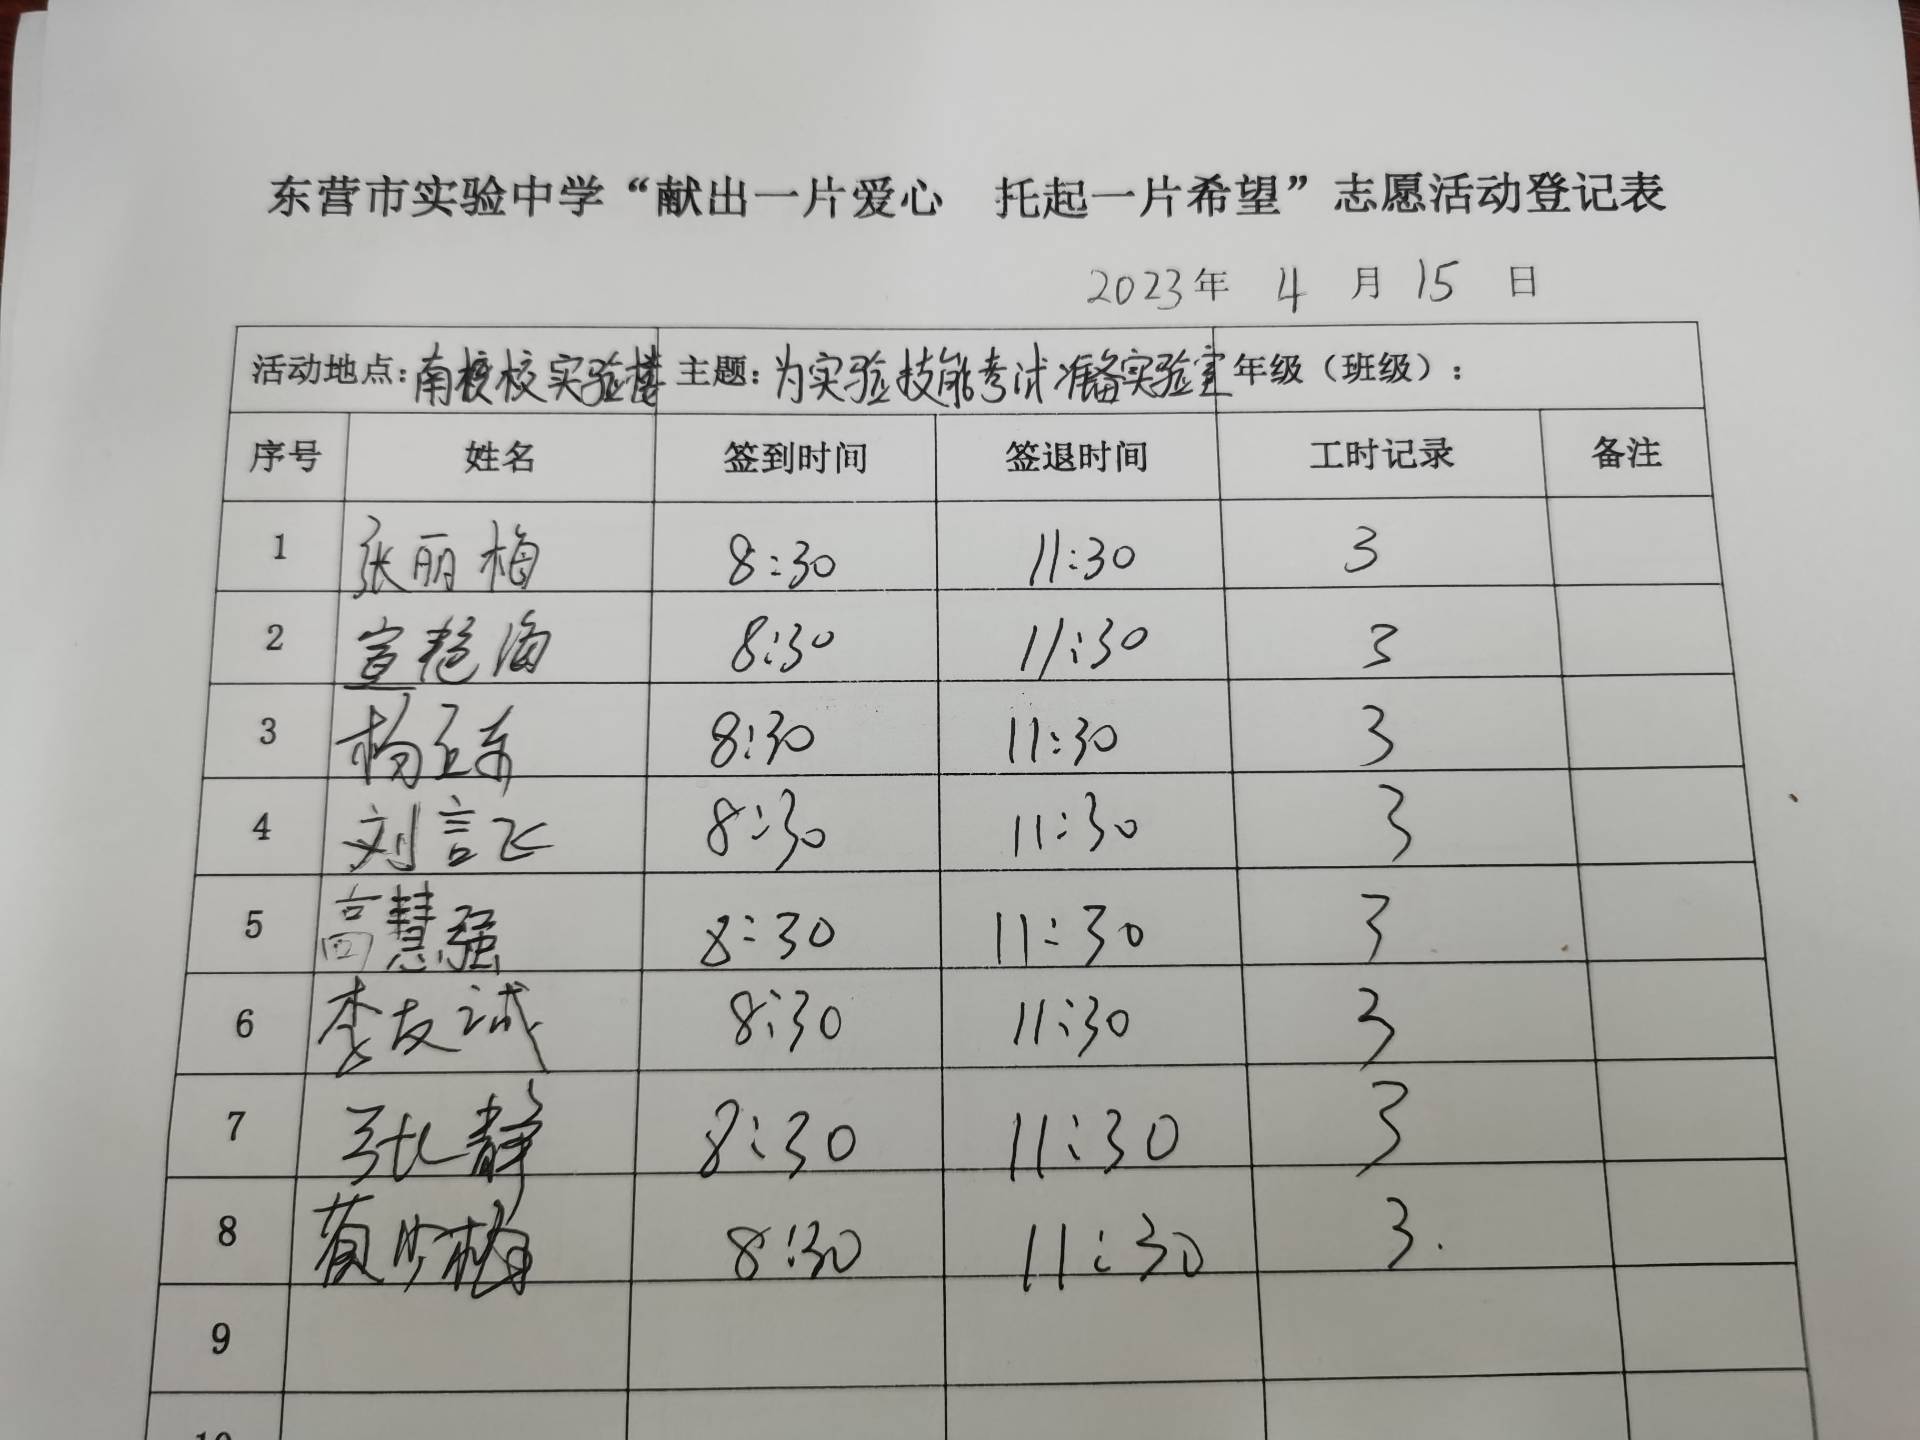 东营市实验中学“献出一片爱心 托起一片希望”志愿活动登记表
2023年 4 月 15 日
活动地点:南校校实验楼 主题:为实验技能考试准备实验室 年级（班级）:
序号 姓名 签到时间 签退时间 工时记录 备注
1 张丽梅 8:30 11:30 3
2 宣艳海 8:30 11:30 3
3 杨玉东 8:30 11:30 3
4 刘言飞 8:30 11:30 3
5 高慧强 8:30 11:30 3
6 李友试 8:30 11:30 3
7 张静 8:30 11:30 3
8 8:30 11:30 3.
9
10